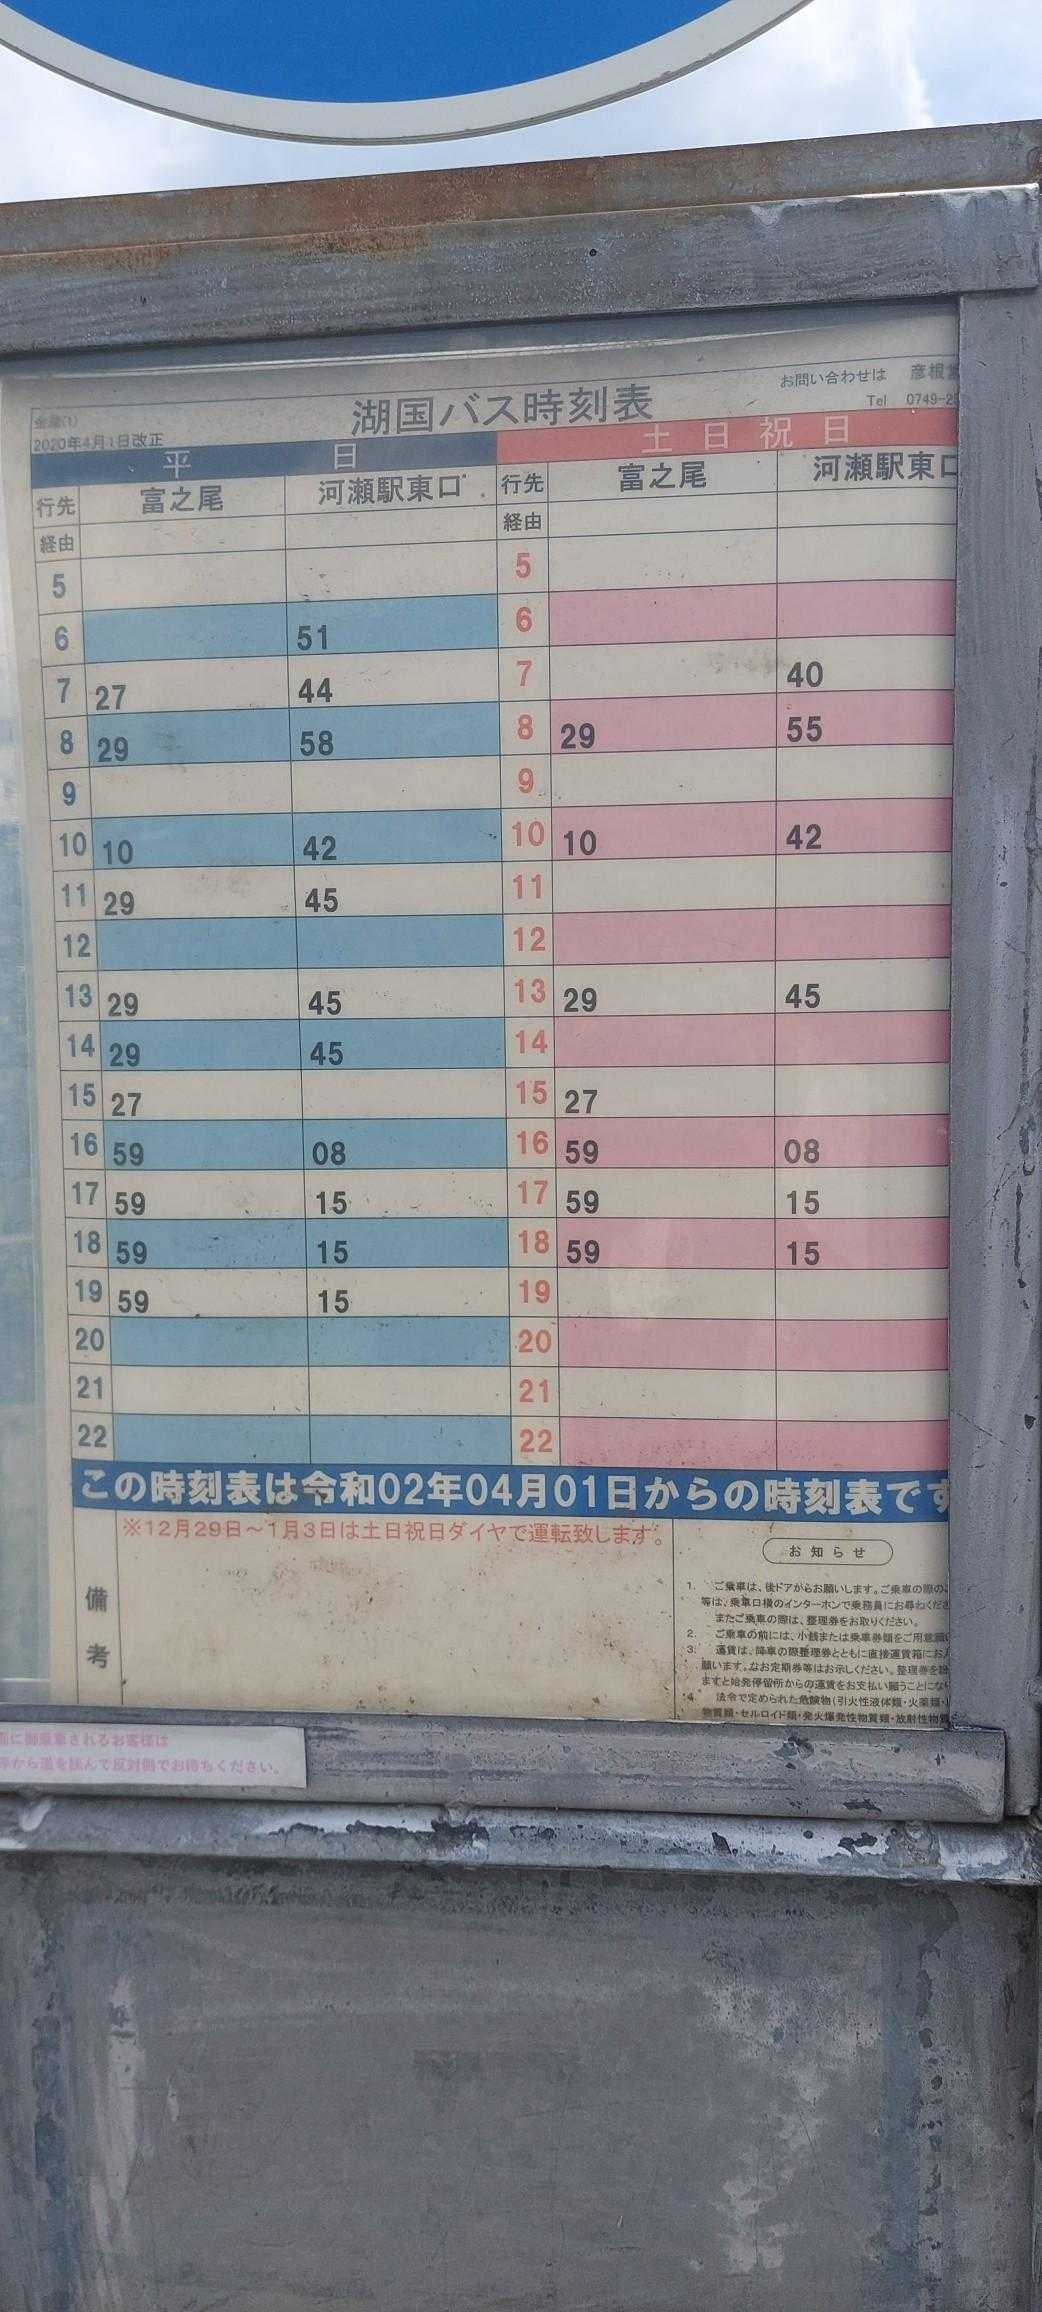 2020年4月1日改正
湖国バス時刻表
お問い合わせは 彦根
Tel 0749-2
平日 土日祝日
行先 富之尾 河瀬駅東口 行先 富之尾 河瀬駅東口
経由 経由
5 5
6 51 6
7 27 44 7 40
8 29 58 8 29 55
9 9
10 10 42 10 10 42
11 29 45 11
12 12
13 29 45 13 29 45
14 29 45 14
15 27 15 27
16 59 08 16 59 08
17 59 15 17 59 15
18 59 15 18 59 15
19 59 15 19
20 20
21 21
22 22
この時刻表は令和02年04月01日からの時刻表です
備考
※12月29日～1月3日は土日祝日ダイヤで運転致します。
お知らせ
1. ご乗車は、後ドアからお願いします。ご乗車の際の
等は、乗車口横のインターホンで乗務員にお尋ねくださ
またご乗車の際は、整理券をお取りください。
2. ご乗車の前には、小銭または乗車券類をご用意願
3. 運賃は、降車の際整理券とともに直接運賃箱にお入
願います。なお定期券等はお示しください。整理券を
ますと始発停留所からの運賃をお支払い願うことにな
4. 法令で定められた危険物(引火性液体類・火薬類・
物質類・セルロイド類・発火爆発性物質類・放射性物質
面に御乗車されるお客様は
から道を挟んで反対側でお待ちください。